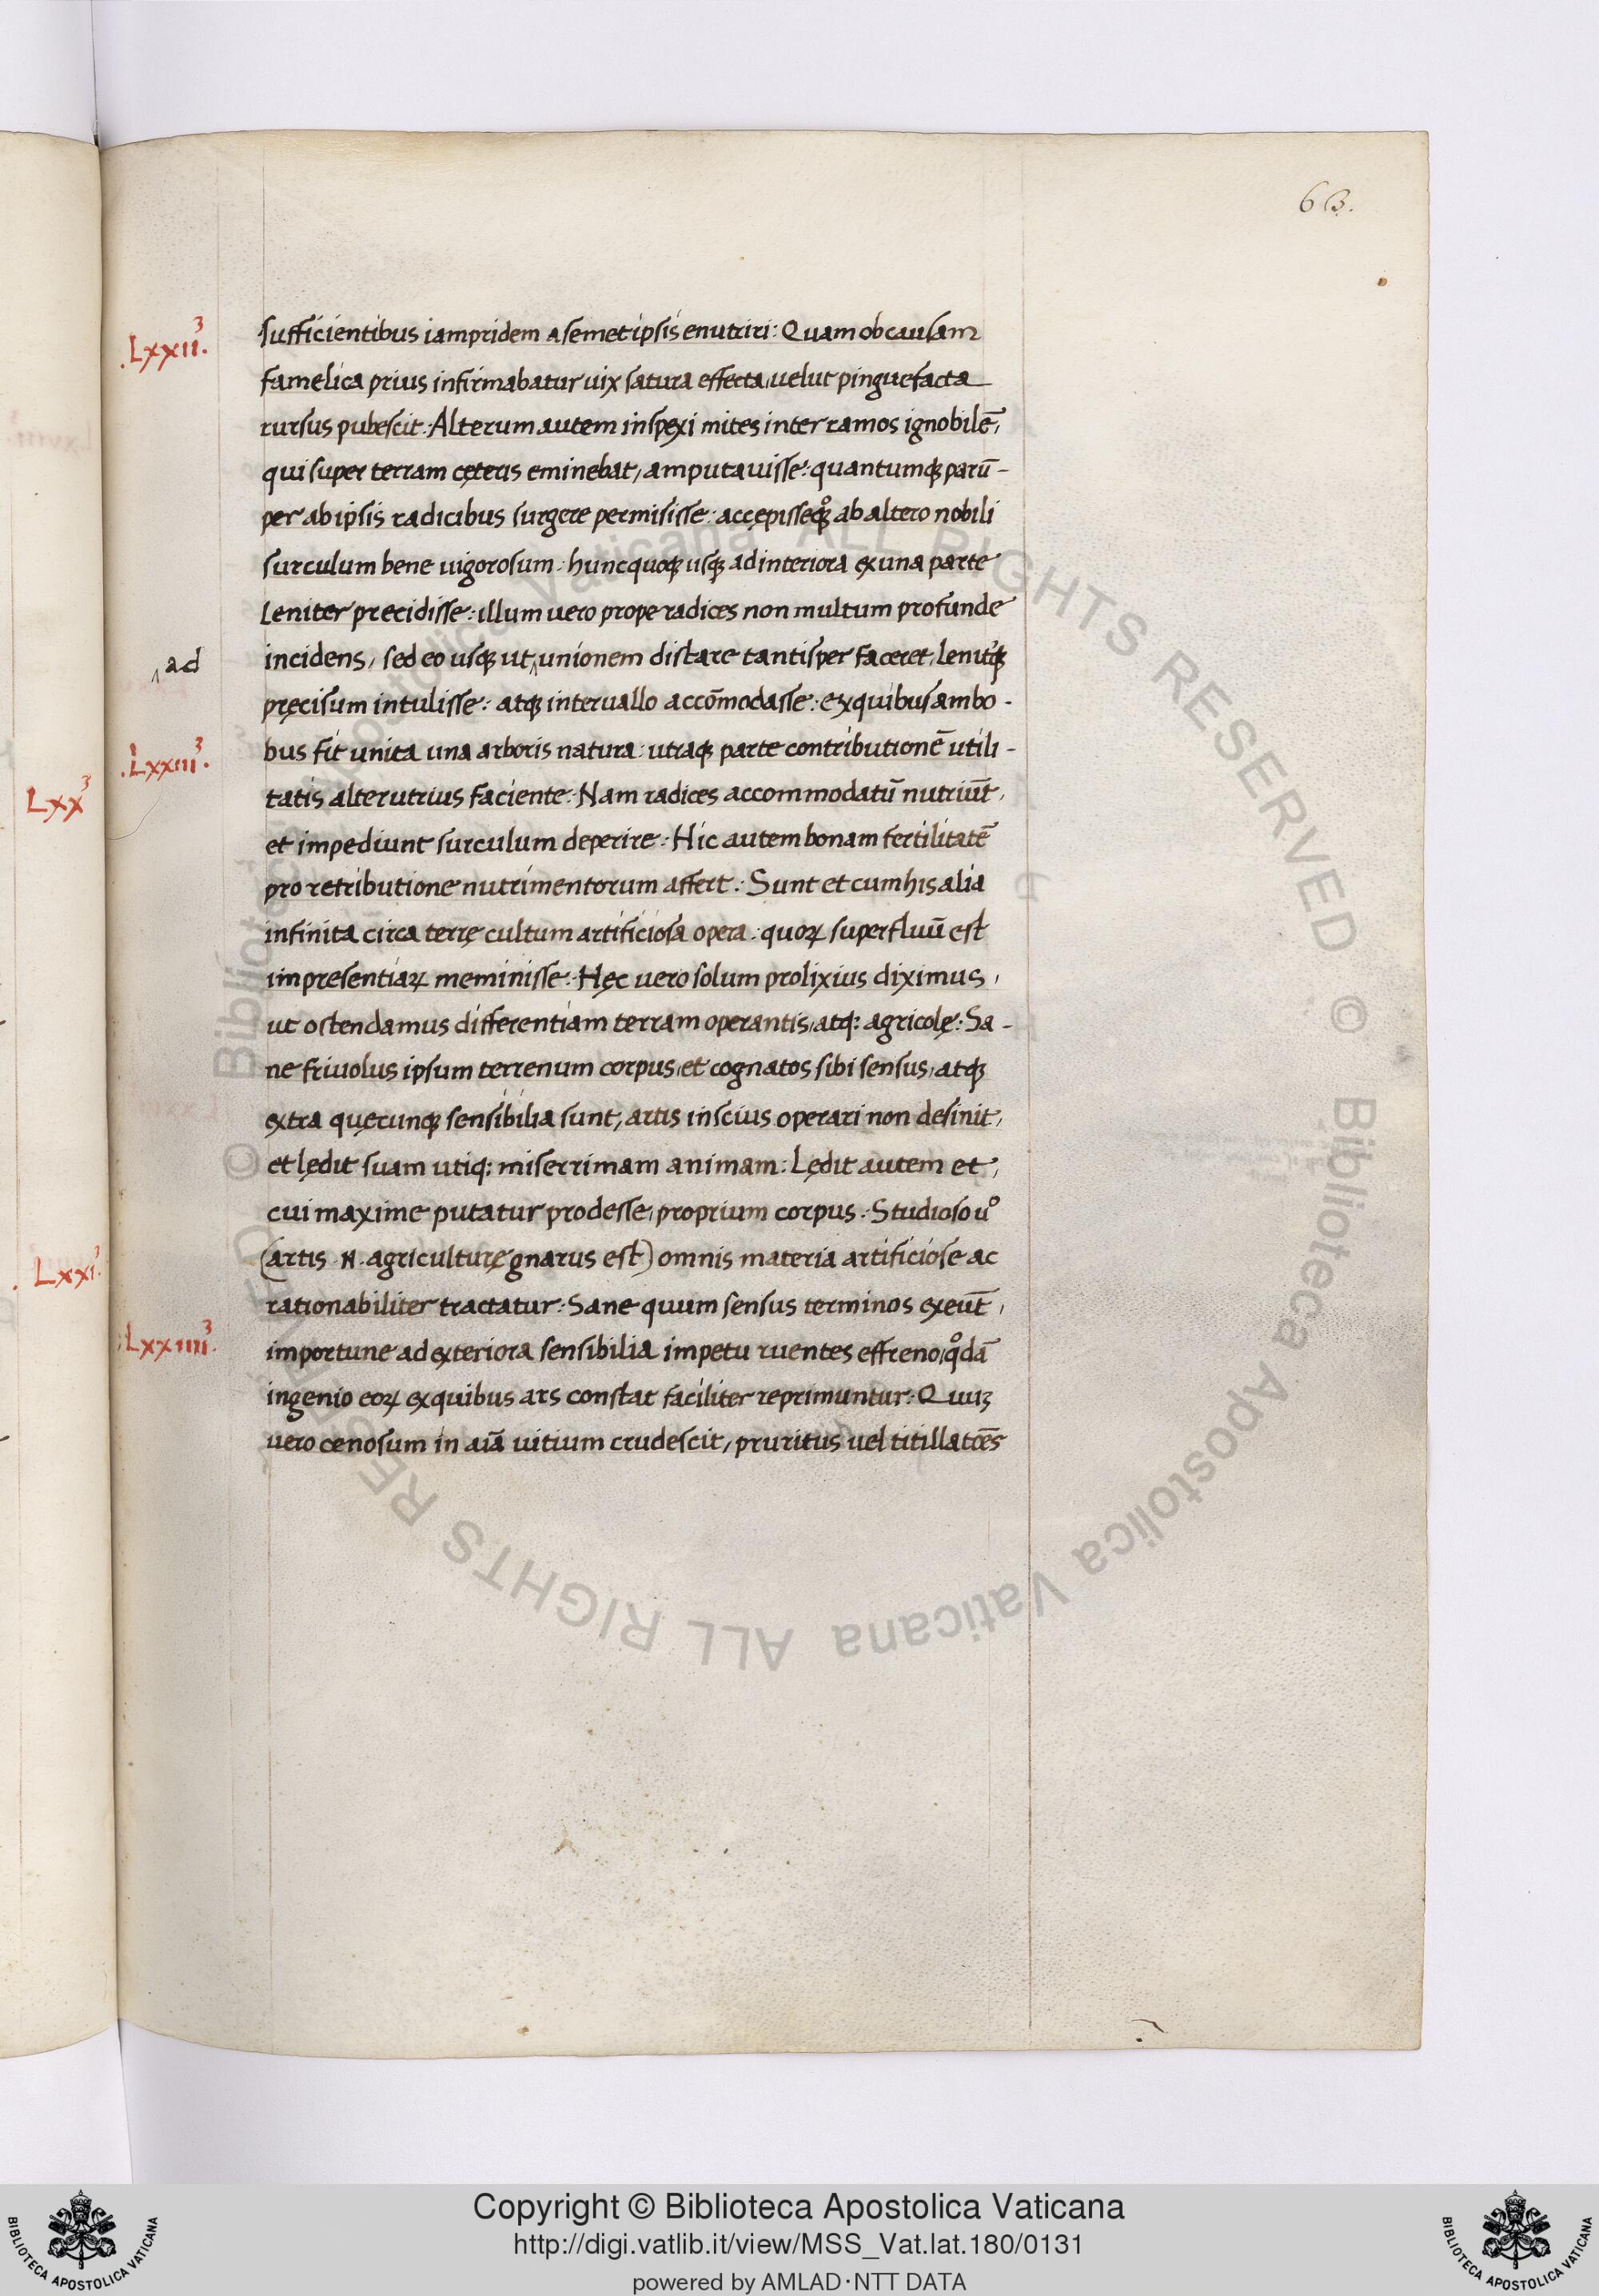 63.
.Lxxii³.
sufficientibus iampridem a semetipsis enutriri: Quam ob causam
famelica prius infirmabatur uix satura effecta, uelut pinguefacta
rursus pubescit: Alterum autem inspexi mites inter ramos ignobilē,
qui super terram cęteris eminebat, amputauisse: quantumqꝫ parū-
per ab ipsis radicibus surgere permisisse: accępisseqꝫ ab altero nobili
surculum bene uigorosum: hunc quoqꝫ usqꝫ ad interiora ex una parte
leniter precidisse: illum uero prope radices non multum profunde
‸ad
incidens, sed eo usqꝫ ut‸unionem distare tantisper faceret, leniṫqꝫ
pręcisum intulisse: atqꝫ interuallo accōmodasse: ex quibus ambo-
.Lxxiii³.
bus fit unita una arboris natura: utraqꝫ parte contributionē utili-
tatis alterutrius faciente: Nam radices accommodatū nutriūt,
et impediunt surculum deperire: Hic autem bonam fertilitatē
pro retributione nutrimentorum affert: Sunt et cum his alia
infinita circa terrę cultum artificiosa opera: quoꝝ superfluū est
impresentiaꝝ meminisse: Hęc uero solum prolixius diximus,
ut ostendamus differentiam terram operantis, atq: agricolę: Sa-
ne friuolus ipsum terrenum corpus, et cognatos sibi sensus, atqꝫ
extra quęcunqꝫ sensibilia sunt, artis inscius operari non desinit,
et lędit suam utiq: miserrimam animam: Lędit autem et,
cui maxime putatur prodesse, proprium corpus: Studioso uº
(artis .N. agriculturę gnarus est) omnis materia artificiose ac
rationabiliter tractatur: Sane quum sensus terminos exeūt,
.Lxxiiii³.
importune ad exteriora sensibilia impetu ruentes effreno, qºdā
ingenio eoꝝ ex quibus ars constat faciliter reprimuntur: Quuꝫ
uero cenosum in aiā uitium crudescit, pruritus uel titillatōes
Lxx³
.Lxxi³.
Copyright © Biblioteca Apostolica Vaticana
http://digi.vatlib.it/view/MSS_Vat.lat.180/0131
powered by AMLAD·NTT DATA
BIBLIOTECA APOSTOLICA VATICANA
BIBLIOTECA APOSTOLICA VATICANA
© Biblioteca Apostolica Vaticana ALL RIGHTS RESERVED © Biblioteca Apostolica Vaticana ALL RIGHTS RESERVED